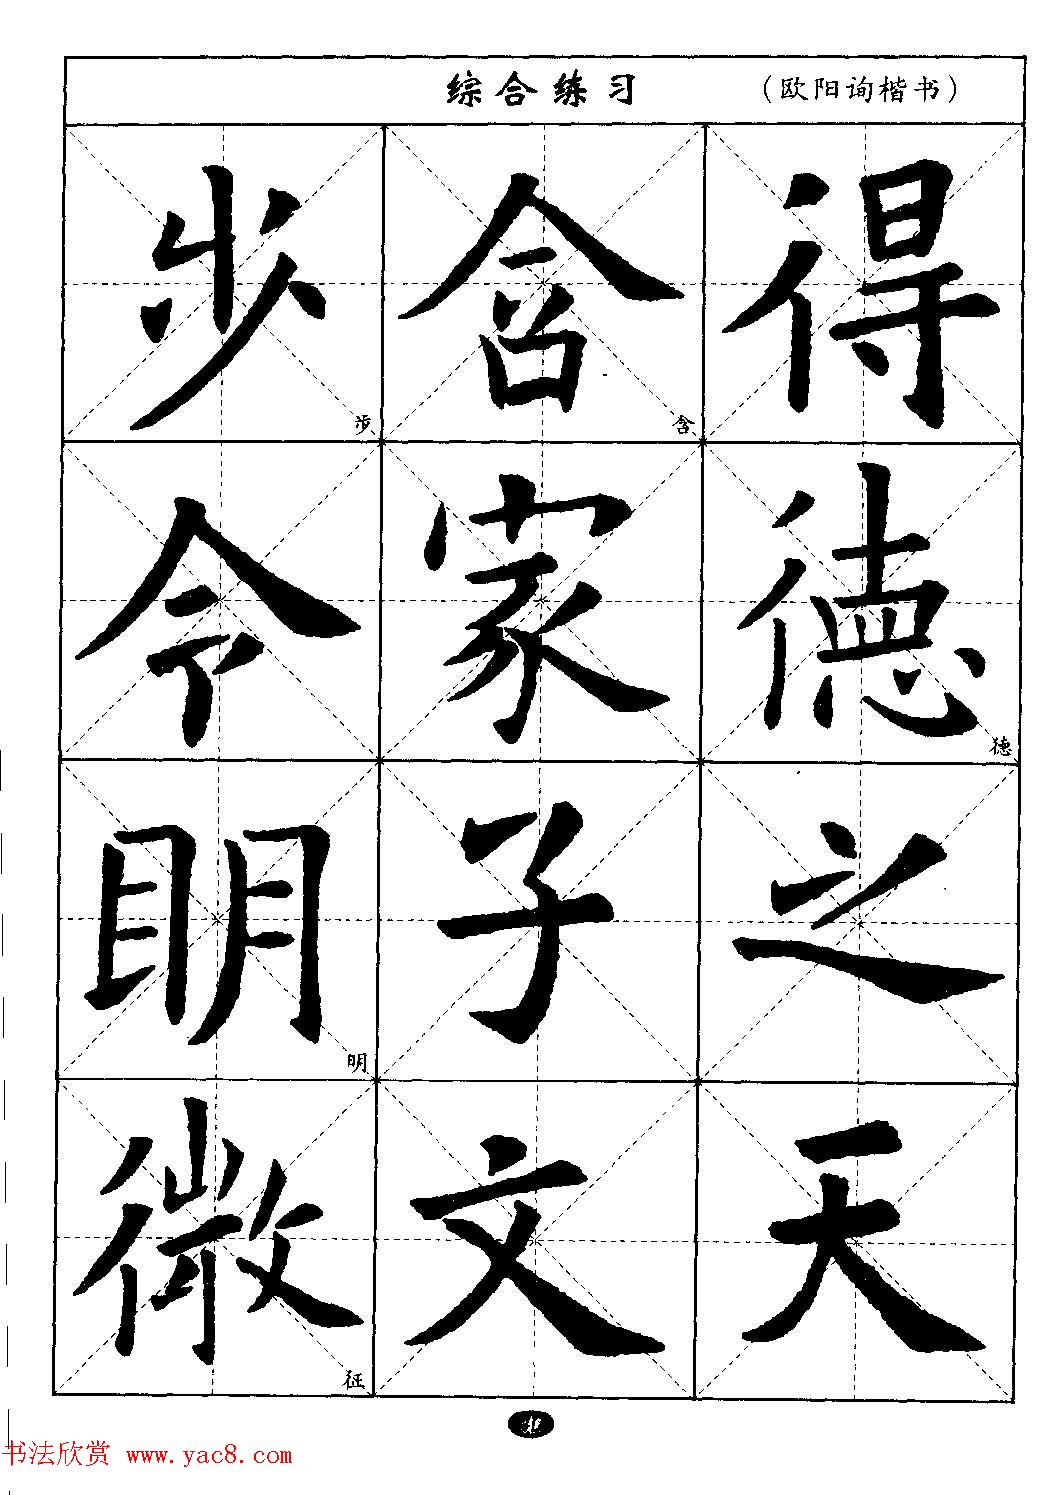 综合练习 （欧阳询楷书）
得德之天
德
含家子文
含
步令明徵
步
明
征
书法欣赏 www.yac8.com